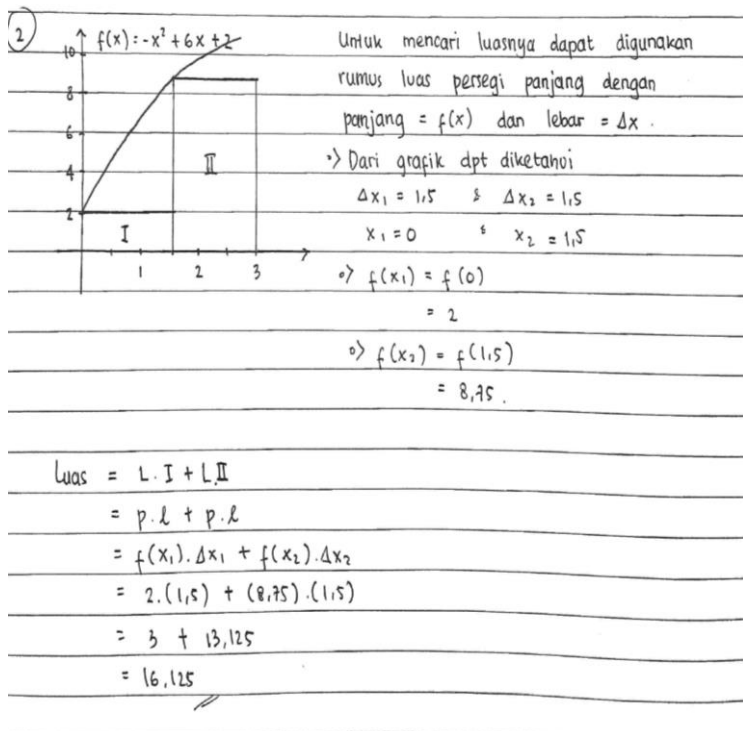 2
f(x) = -x² + 6x + 2
10
8
6
4
2
I
II
1 2 3
Untuk mencari luasnya dapat digunakan
rumus luas persegi panjang dengan
panjang = f(x) dan lebar = Δx .
•> Dari grafik dpt diketahui
Δx₁ = 1,5 & Δx₂ = 1,5
x₁ = 0 & x₂ = 1,5
•> f(x₁) = f(0)
= 2
•> f(x₂) = f(1,5)
= 8,75 .
Luas = L.I + L.II
= p.l + p.l
= f(x₁).Δx₁ + f(x₂).Δx₂
= 2.(1,5) + (8,75).(1,5)
= 3 + 13,125
= 16,125